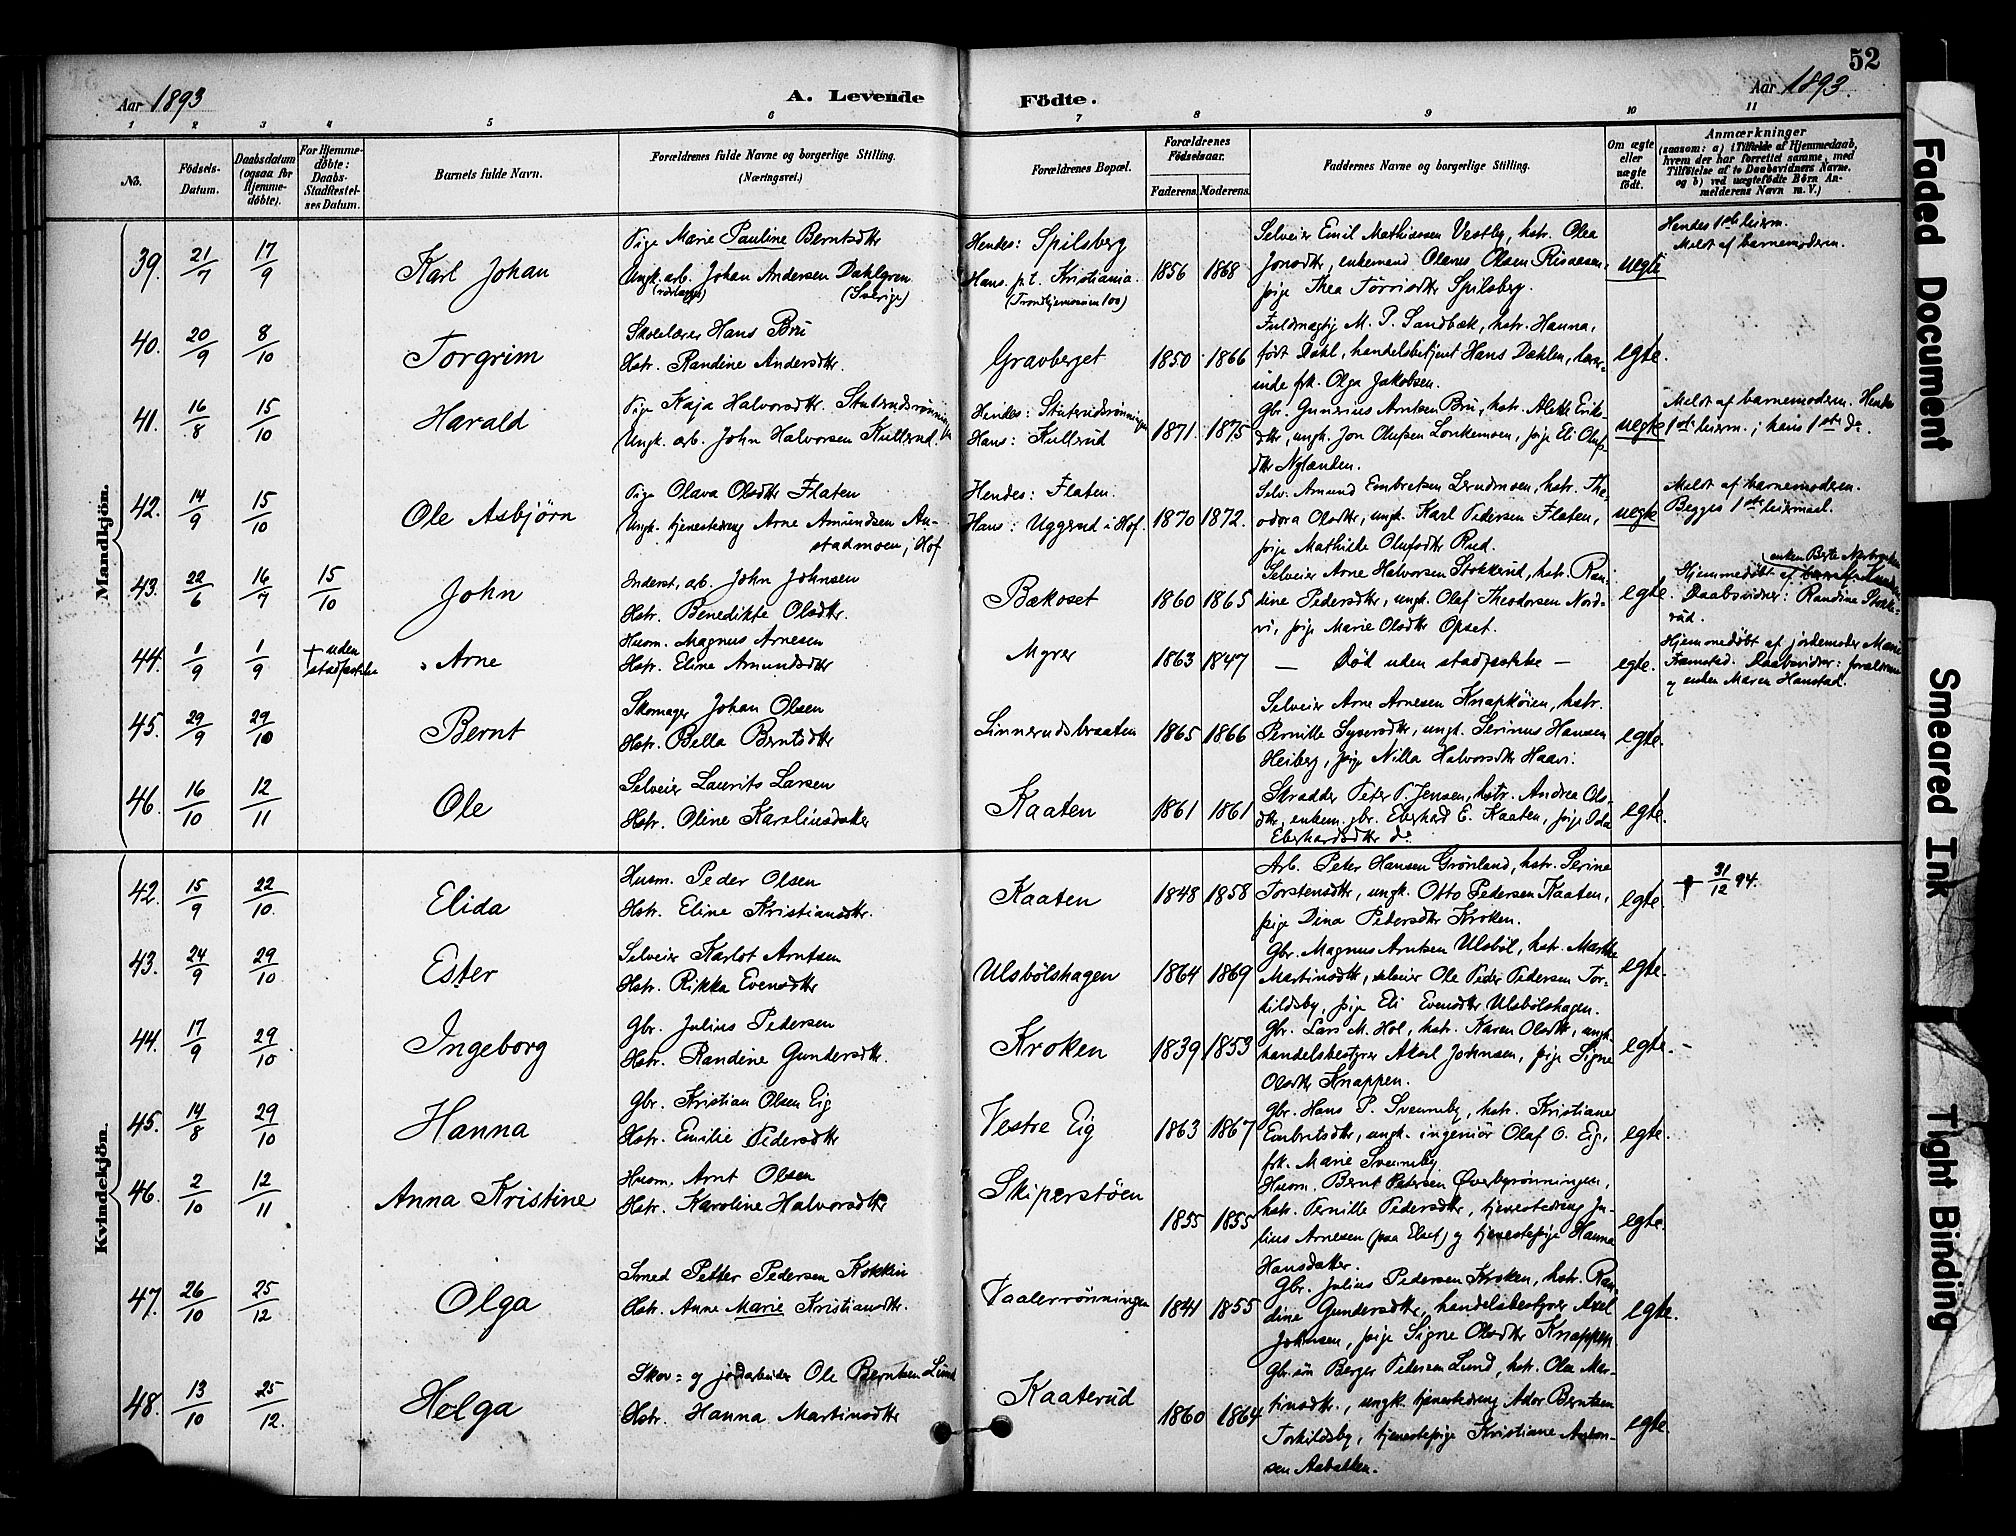 52
Aar 1893 A. Levende Födte. Aar 1893.
1 2 3 4 5 6 7 8 9 10 11
No.
Födsels-Datum.
Daabsdatum (ogsaa for Hjemme-döbte).
For Hjemme-döbte: Daabs-Stadfæstel-ses Datum.
Barnets fulde Navn.
Forældrenes fulde Navne og borgerlige Stilling.
(Næringsvei.)
Forældrenes Bopæl.
Forældrenes Födselsaar.
Faderens. Moderens.
Faddernes Navne og borgerlige Stilling.
Om ægte eller uægte födt.
Anmærkninger
(saasom: a) i Tilfælde af Hjemmedaab, hvem der har forrettet samme, med Tilföielse af to Daabsvidners Navne, og b) ved uægtefödte Börn Anmelderens Navn m. V.)
Mandkjön.
39. 21/7 17/9 Karl Johan
Pige Marie Pauline Berntsdtr
Ungk. arb. Johan Andersen Dahlgren
(Sverige)
Hendes: Spilsberg
Hans p.t. Kristiania.
1856 1868
Selveier Emil Mathiassen Vestby, hstr. Olea
Jonsdtr, enkemand Olaves Olsen Risaasen,
pige Thea Förrisdtr Spilsberg.
uegte
Hendes 1ste leierm.
Meldt af barnemoderen.
40. 20/9 8/10 Torgrim
Skolelærer Hans Bru
Hstr. Randine Andersdtr.
Gravberget
1850 1866
Fuldmægtig M. P. Sandbæk, hstr. Hanna,
født Dahl, handelsbetjent Hans Dahlen, lærer-
inde frk. Olga Jakobsen.
egte.
41. 16/8 15/10 Harald
Pige Kaja Halvorsdtr. Stuterudsrønningen
Ungk. arb. John Halvorsen Kullerud.
Hendes: Stuterudsrønningen
Hans: Kullerud
1871. 1875
Gbr. Gunerius Arntsen Bru, hstr. Alette Eriks-
dtr, ungk. Jon Olufsen Lonkemoen, pige Eli Olufs-
dtr Nylænden.
uegte
Meldt af barnemoderen. Hendes
1ste leierm.; hans 1ste do
42. 14/9 15/10 Ole Asbjörn
Pige Olava Olsdtr Flaten
Ungk. tjenestedreng Arne Amundsen An-
stadmoen, Hof
Hendes: Flaten.
Hans: Uggerud i Hof.
1870 1872.
Selv. Amund Embretsen Lerudmoen, hstr. The-
odora Olsdtr, ungk. Karl Pedersen Flaten,
pige Mathilde Olufsdtr Rud.
uegte
Meldt af barnemoderen.
Begges 1ste leiermaal.
43. 22/6 16/7 15/10 John
Inderst, arb. John Johnsen
Hstr. Benedikte Olsdtr.
Bækoset
1860 1865
Selveier Arne Halvorsen Stokkerud, hstr. Ran-
dine Pedersdtr, ungk. Olaf Theodorsen Nord-
vi, pige Marie Olsdtr Opset.
egte
Hjemmedøbt af
Daabsvidner: Randine Stokke-
rud.
44. 1/9 1/9 † uden stadfæstelse Arne
Husm. Magnus Arnesen
Hstr. Eline Amundsdtr
Myrer
1863 1847
— Död uden stadfæstelse —
egte.
Hjemmedøbt af jordemoder Marie
Framstad. Daabsvidner: forældrene
og enken Maren Hanstad.
45. 29/9 29/10 Bernt
Skomager Johan Olsen
Hstr. Bella Berntsdtr
Linnerudsbraaten
1865 1866
Selveier Arne Arnesen Knapkøien, hstr.
Pernille Syversdtr, ungk. Serinus Hansen
Heiberg, pige Nilla Halvorsdtr Haavi.
egte.
46. 16/10 12/11 Ole
Selveier Laurits Larsen
Hstr. Oline Karelinsdatter
Kaaten
1861 1861
Skrædder Peter P. Jensen, hstr. Andrea Ols-
dtr, enkem. gbr. Eberhard E. Kaaten, pige Ida
Eberhardsdtr do
egte.
Kvindekjön.
42. 15/9 22/10. Elida
Husm. Peder Olsen
Hstr. Eline Kristiansdtr.
Kaaten
1848 1858
Arb. Peter Hansen Grönland, hstr. Serine
Torstensdtr, ungk. Otto Pedersen Kaaten,
pige Dina Pedersdtr Kroken.
egte.
† 31/12 94.
43. 24/9 29/10 Ester
Selveier Karlot Arntsen
Hstr. Rikka Evensdtr
Ulsbölshagen
1864 1869
Gbr. Magnus Arntsen Ulsböl, hstr. Marthe
Martinsdtr, selveier Ole Peder Pedersen Tor-
kildsby, pige Eli Evensdtr Ulsbölshagen.
egte.
44. 17/9 29/10 Ingeborg
Gbr. Julius Pedersen
Hstr. Randine Gundersdtr.
Kroken
1839 1853
Gbr. Lars M. Hol, hstr. Karen Olsdtr, ungk.
handelsbestyrer Aksel Johnsen, pige Signe
Olsdtr Knappen.
egte.
45. 14/8 29/10 Hanna
Gbr. Kristian Olsen Eig
Hstr. Emilie Pedersdtr
Vestre Eig
1863 1867
Gbr. Hans P. Svenneby, hstr. Kristiane
Embretsdtr, ungk. ingeniör Olaf O. Eig,
frk. Marie Svenneby
egte.
46. 2/10 12/11 Anna Kristine
Husm. Arnt Olsen
Hstr. Karoline Halvorsdtr
Skiperstöen
1855 1855
Husm. Bernt Petersen Överbyrönningen,
hstr. Pernille Pedersdtr, tjenestedreng Ju-
lius Arnesen (paa Elset) og tjenestepige Hanna
Hansdatter.
egte.
47. 26/10 25/12 Olga
Smed Petter Pedersen Kokkin
Hstr. Anne Marie Kristiansdtr.
Vaalerrönningen
1841 1855
Gbr. Julius Pedersen Kroken, hstr. Ran-
dine Gundersdtr, handelsbestyrer Axel
Johnsen, pige Signe Olsdtr Knappen
egte.
48. 13/10 25/12. Helga
Skov= og jordarbeider Ole Berntsen Lund
Hstr. Hanna Martinsdtr
Kaaterud
1860 1864
Gbr.sön Berger Pedersen Lund, hstr. Olea Mar-
tinsdtr., ungk. tjenestedreng Ador Berntsen
Torkildsby, tjenestepige Kristiane Anton-
sen Aabakken.
egte.
Faded Document
Smeared Ink
Tight Binding